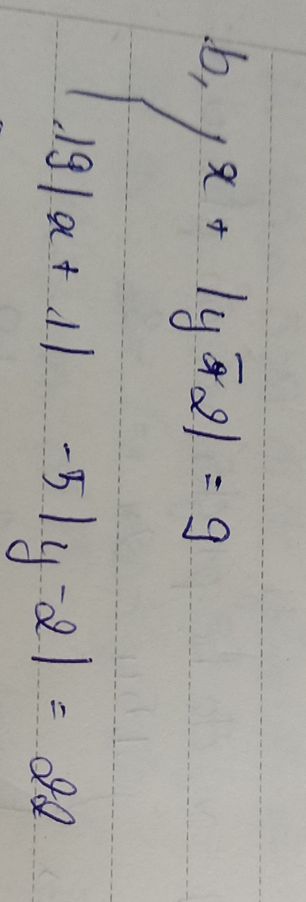 b, x + |y - 2| = 9
19|x + 1| - 5|y - 2| = 22